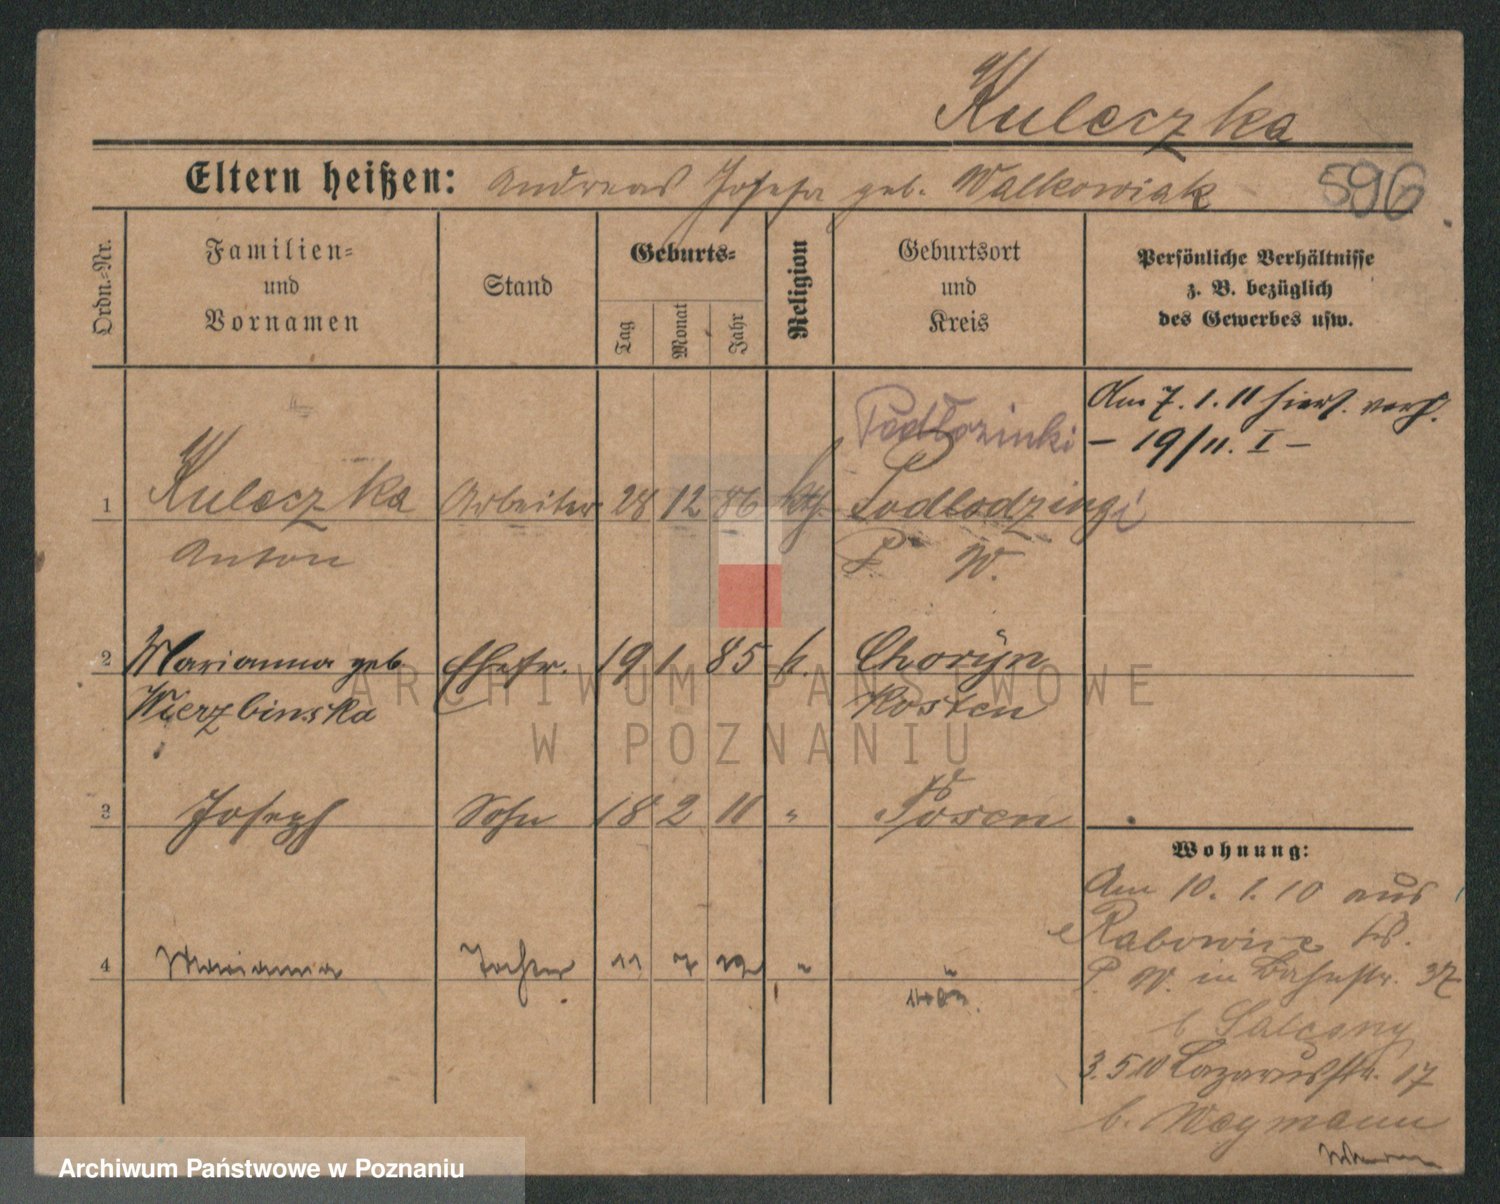 Kuleczka
Eltern heißen: Andreas Josefa geb. Walkowiak
596
Ordn.-Nr.
Familien-
und
Vornamen
Stand
Geburts-
Tag
Monat
Jahr
Religion
Geburtsort
und
Kreis
Persönliche Verhältnisse
z. B. bezüglich
des Gewerbes usw.
Am 7. 1. 11 hier verh.
– 19/11. I –
1 Kuleczka Arbeiter 28 12 86 kth.
Anton P. W.
2 Marianna geb. Ehefr. 19 1 85 k. Choryn
Wierzbinska Kosten
3 Joseph Sohn 18 2 11 " Posen
4 Marianna Tochter 11 7 12 " "
Wohnung:
Am 10. 1. 10 aus
Rabowice
P. W. in Bahnstr. 37
b
3.5.10 Lazarusstr. 17
b. Wegmann
ARCHIWUM PAŃSTWOWE
W POZNANIU
Archiwum Państwowe w Poznaniu